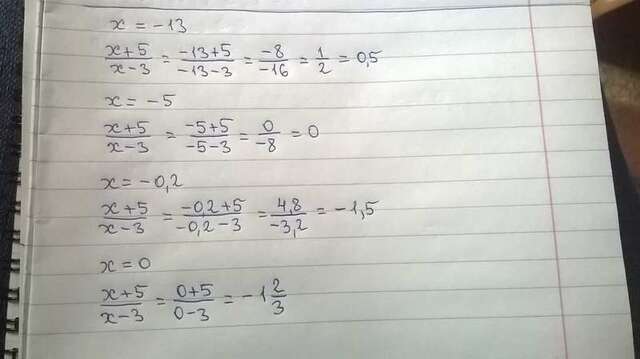 x = -13
(x+5)/(x-3) = (-13+5)/(-13-3) = (-8)/(-16) = 1/2 = 0,5
x = -5
(x+5)/(x-3) = (-5+5)/(-5-3) = 0/(-8) = 0
x = -0,2
(x+5)/(x-3) = (-0,2+5)/(-0,2-3) = 4,8/(-3,2) = -1,5
x = 0
(x+5)/(x-3) = (0+5)/(0-3) = -1 2/3